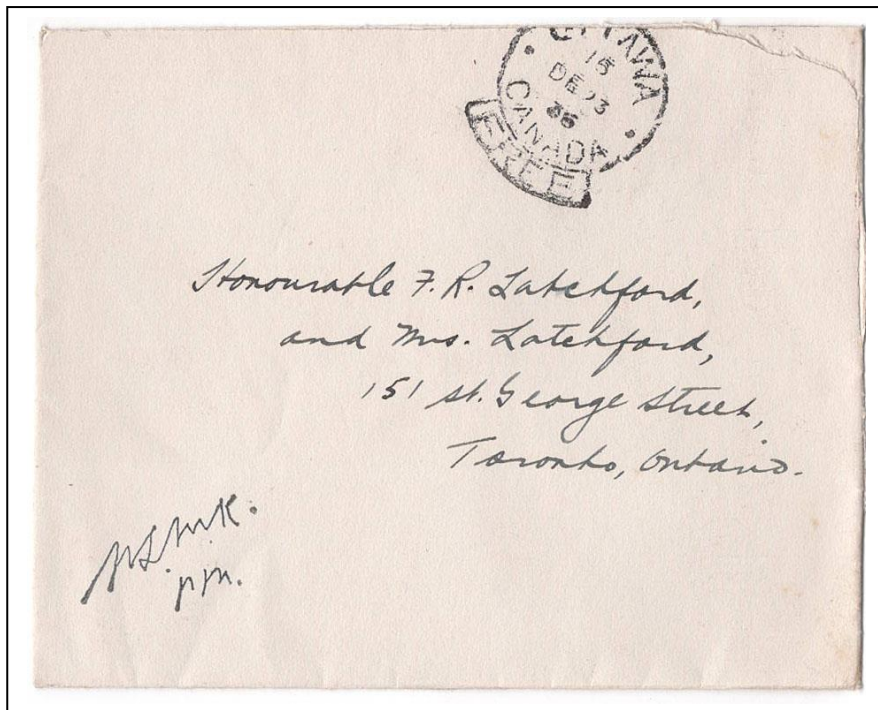 OTTAWA
15
DE 23
36
CANADA
FREE
Honourable F. R. Latchford,
and Mrs. Latchford,
151 St. George Street,
Toronto, Ontario.
W.L.M.K.
P.M.